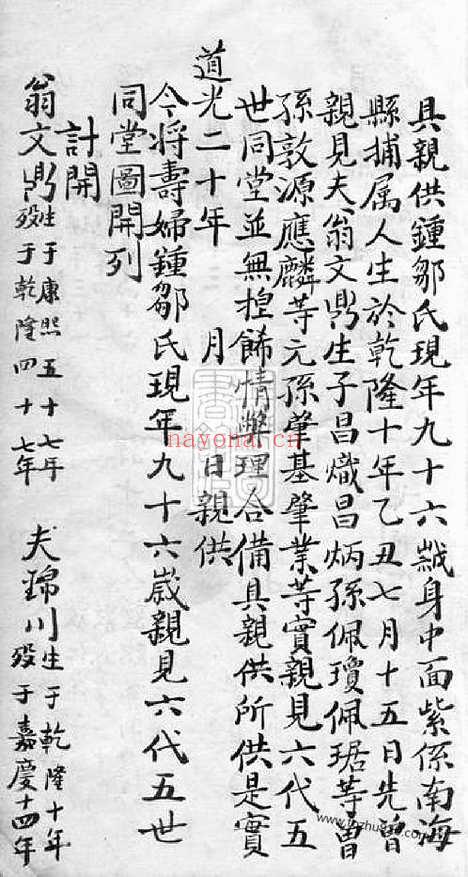 具親供鍾鄒氏現年九十六歲身中面紫係南海
縣捕属人生於乾隆十年乙丑七月十五日先曾
親見夫翁文鼎生子昌熾昌炳孫佩瓊佩琚等曾
孫敦源應麟等元孫肇基肇業等實親見六代五
世同堂並無捏飾情弊理合備具親供所供是實
道光二十年 月 日親供
今將壽婦鍾鄒氏現年九十六歲親見六代五世
同堂圖開列
計開
翁文鼎 生于康熙五十七年 歿于乾隆四十七年 夫錦川 生于乾隆十年 歿于嘉慶十四年
nayona.cn